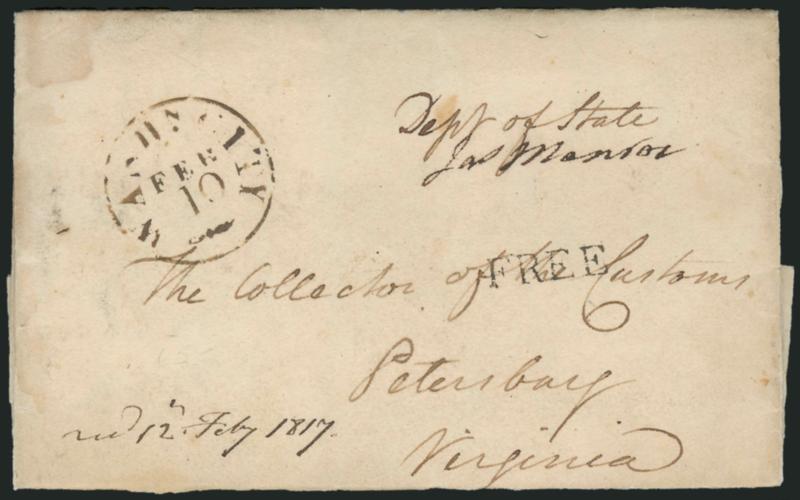 WASHN. CITY
FEB
10
Dept of State
Jas Monroe
FREE
The Collector of the Customs
Petersburg
Virginia
recd 12th Feby 1817.